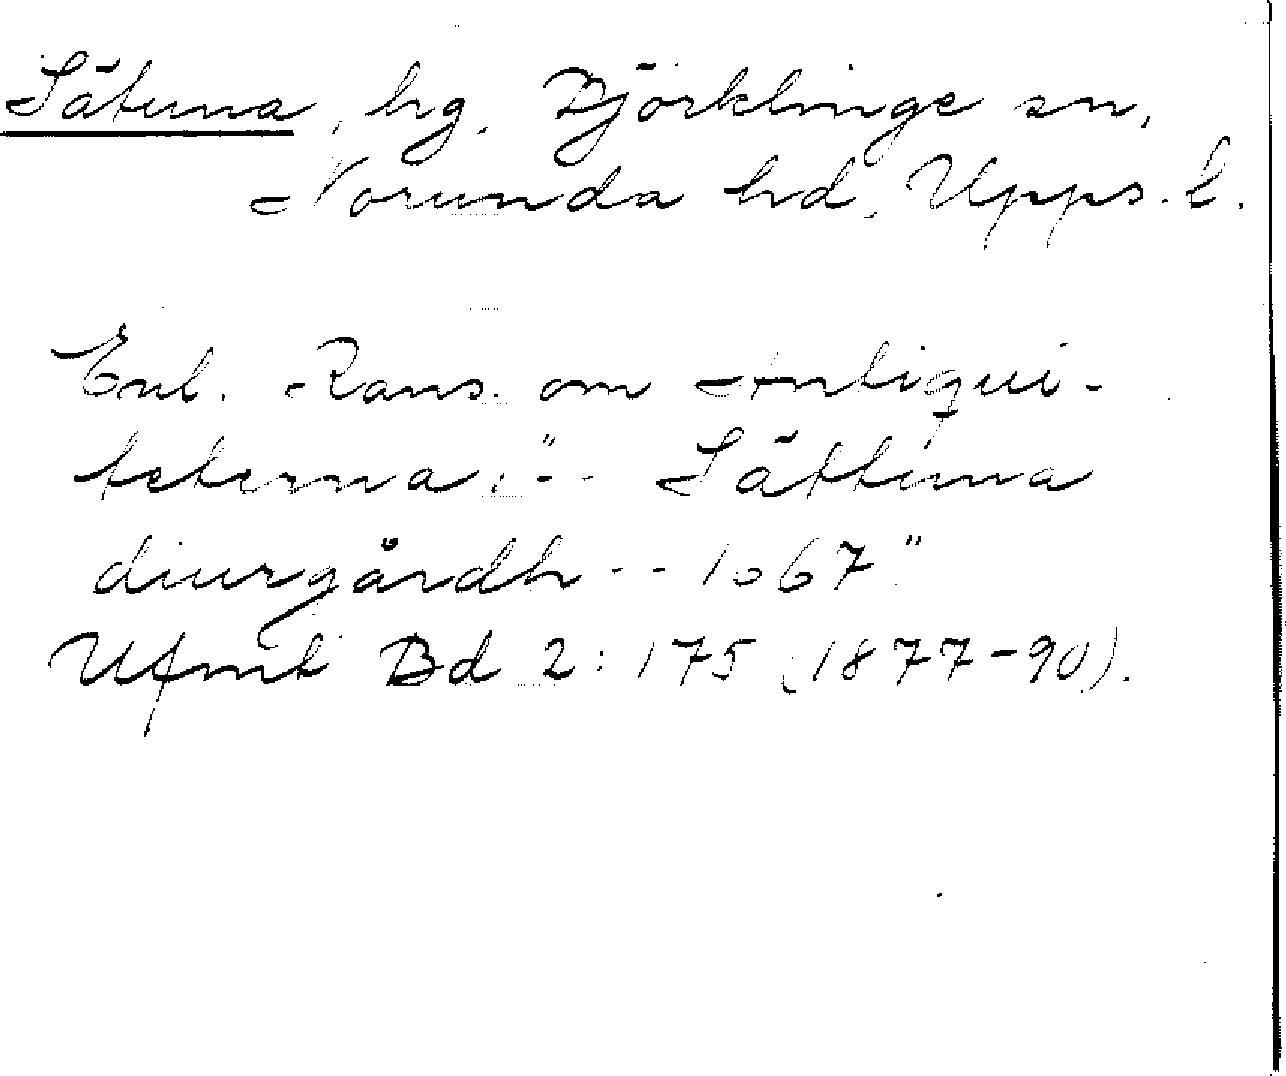 Sätuna, hg. Björklinge sn,
Norunda hd, Upps. l.
Enl. Rans. om Antiqui-
teterna: "-- Sättuna
diurgårdh -- 1667"
Ufmt Bd 2: 175 (1877-90).